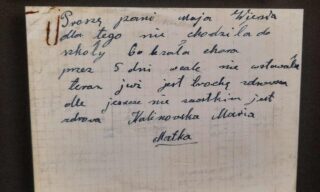 Proszę pani moja Wiesia
dla tego nie chodziła do
szkoły bo była chora
przez 5 dni wcale nie wstawała
teraz już jest trochę zdrowsza
ale jeszcze nie całkim jest
zdrowa Kalinowska Maria
Matka